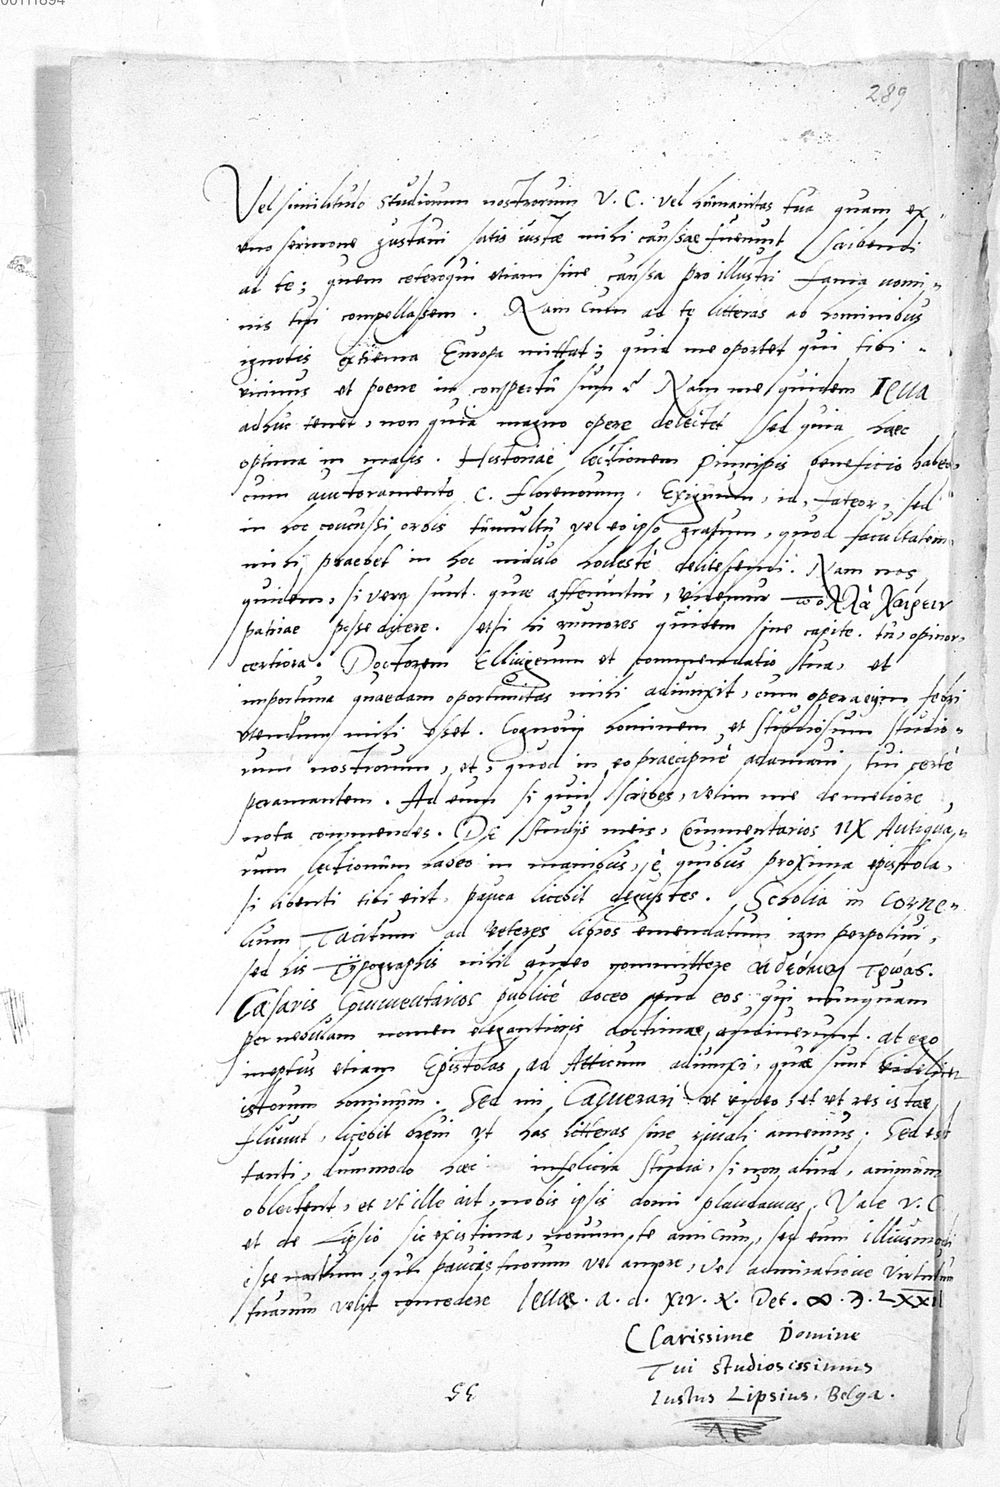 00111894
289
Vel similitudo studiorum nostrorum V. C. vel humanitas tua quam ex
uno sermone gustavi satis iustae mihi caussae fuerunt scribendi
ad te; quem ceteroqui etiam sine caussa pro illustri fama nomi-
nis tui compellassem. Nam cum ad te litteras ab hominibus
ignotis extrema Europa mittat; quid me oportet qui tibi
vicinus et poene in conspectu sum? Nam me quidem Iena
adhuc tenet, non quia magno opere delectet sed quia haec
optima in malis. Historiae lectionem Principis beneficio habeo,
cum auctoramento C. florenorum. Exiguum, id, fateor, sed
in hoc concussi orbis tumultu vel eo ipso gratum, quod facultatem
mihi praebet in hoc nidulo honestè delitescendi. Nam nos
quidem, si vera sunt quae afferuntur, πολλὰ χαίρειν
patriae posse dicere. etsi hi rumores quidem sine capite. tu, opinor,
certiora. Doctorem Ellingerum et commendatio tua, et
importuna quaedam oportunitas mihi adiunxit, cum opera eius febri
utendum mihi esset. Cognovi hominem et studiosum studio-
rum nostrorum, et, quod in eo praecipuè adamavi, tui certè
peramantem. Ad eum si quid scribes, velim me de meliore
nota commendes. De studijs meis, Commentarios IIX Antiqua-
rum lectionum habeo in manibus, è quibus proxima epistola,
si libenti tibi erit, pauca licebit degustes. Scholia in Corne-
lium Tacitum ad veteres libros emendatum iam perpolivi,
sed his Typographis nihil audeo committere αἰδέομαι Τρῶας.
Caesaris Commentarios publicè doceo apud eos qui nunquam
per nebulam nomen elegantioris doctrinae audiverunt. at ego
ineptus etiam Epistolas ad Atticum adiunxi, quae sunt
istorum hominum. Sed mi Camerari ut video, et ut res istae
fluunt, licebit brevi ut has litteras sine rivali amemus. Sed est
tanti, dummodo haec infelicia studia, si non aliud, animum
oblectent, et ut ille ait, nobis ipsis domi plaudamus. Vale V. C.
et de Lipsio sic existima, novum te amicum, sed eum illiusmodi
esse nactum, qui paucis tuorum vel amore, vel admiratione virtutum
tuarum velit concedere Ienae. a. d. XIV. K. Dec. ∞. D. LXXII
Clarissime Domine
Tui studiosissimus
Iustus Lipsius. Belga.